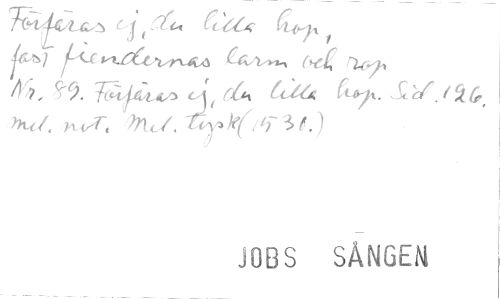 Förfäras ej, du lilla hop,
fast fiendernas larm och rop
Nr. 89. Förfäras ej, du lilla hop. Sid. 196.
mel. not. Mel. tysk (1530.)
JOBS SÅNGEN